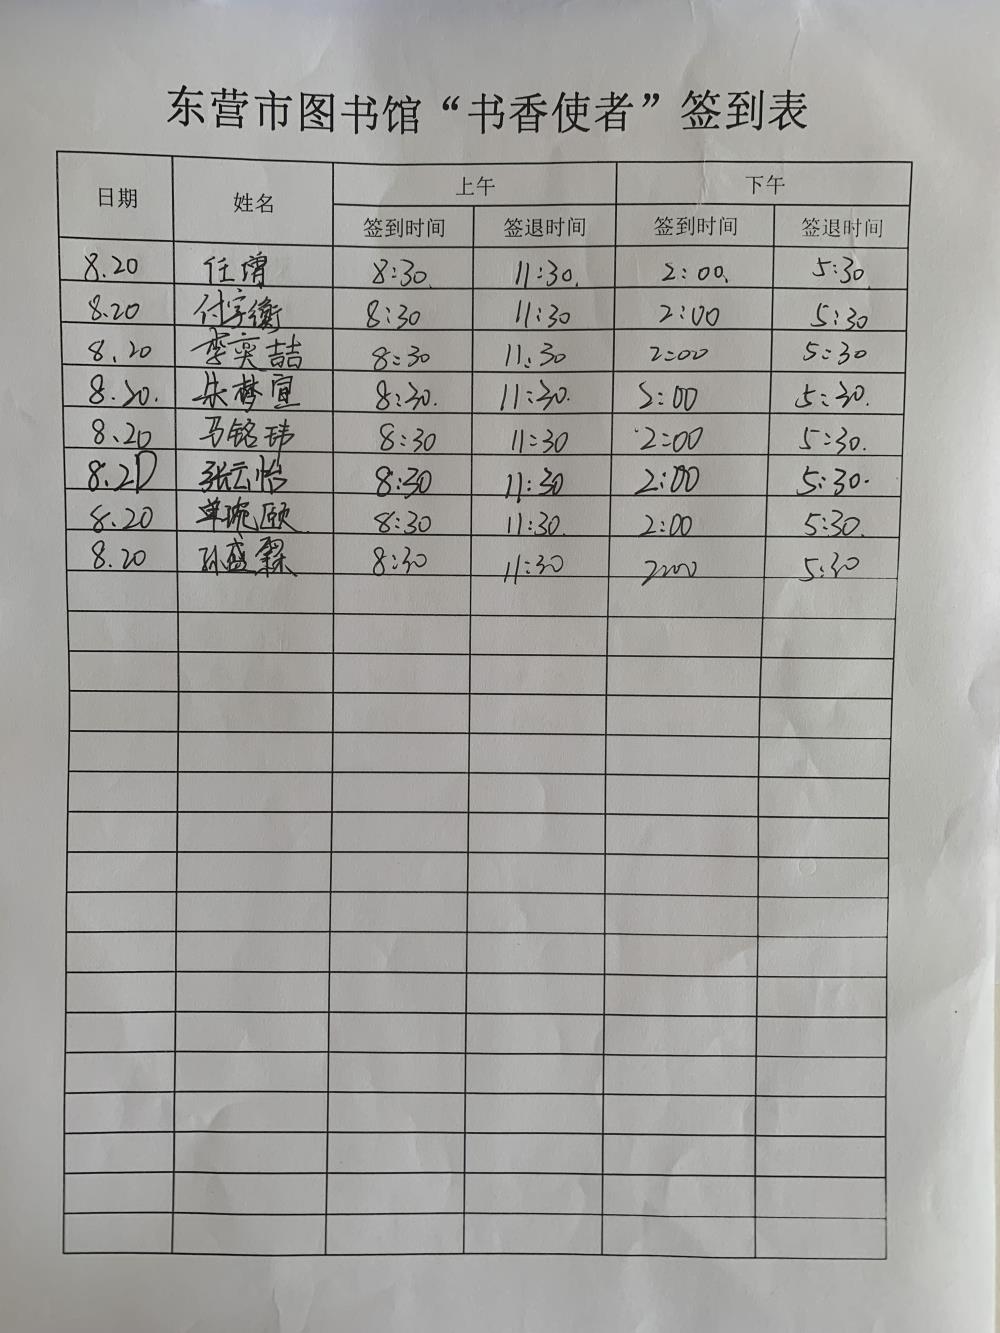 东营市图书馆“书香使者”签到表
日期 姓名 上午 下午
签到时间 签退时间 签到时间 签退时间
8.20 任增 8:30. 11:30. 2:00. 5:30.
8.20 付宇衡 8:30 11:30 2:00 5:30
8.20 李奕喆 8:30 11:30 2:00 5:30
8.20. 朱梦宣 8:30. 11:30. 2:00 5:30.
8.20 马铭玮 8:30 11:30 2:00 5:30.
8.20 张云怡 8:30 11:30 2:00 5:30.
8.20 单琬颐 8:30 11:30. 2:00 5:30.
8.20 孙盛霖 8:30 11:30 2:00 5:30